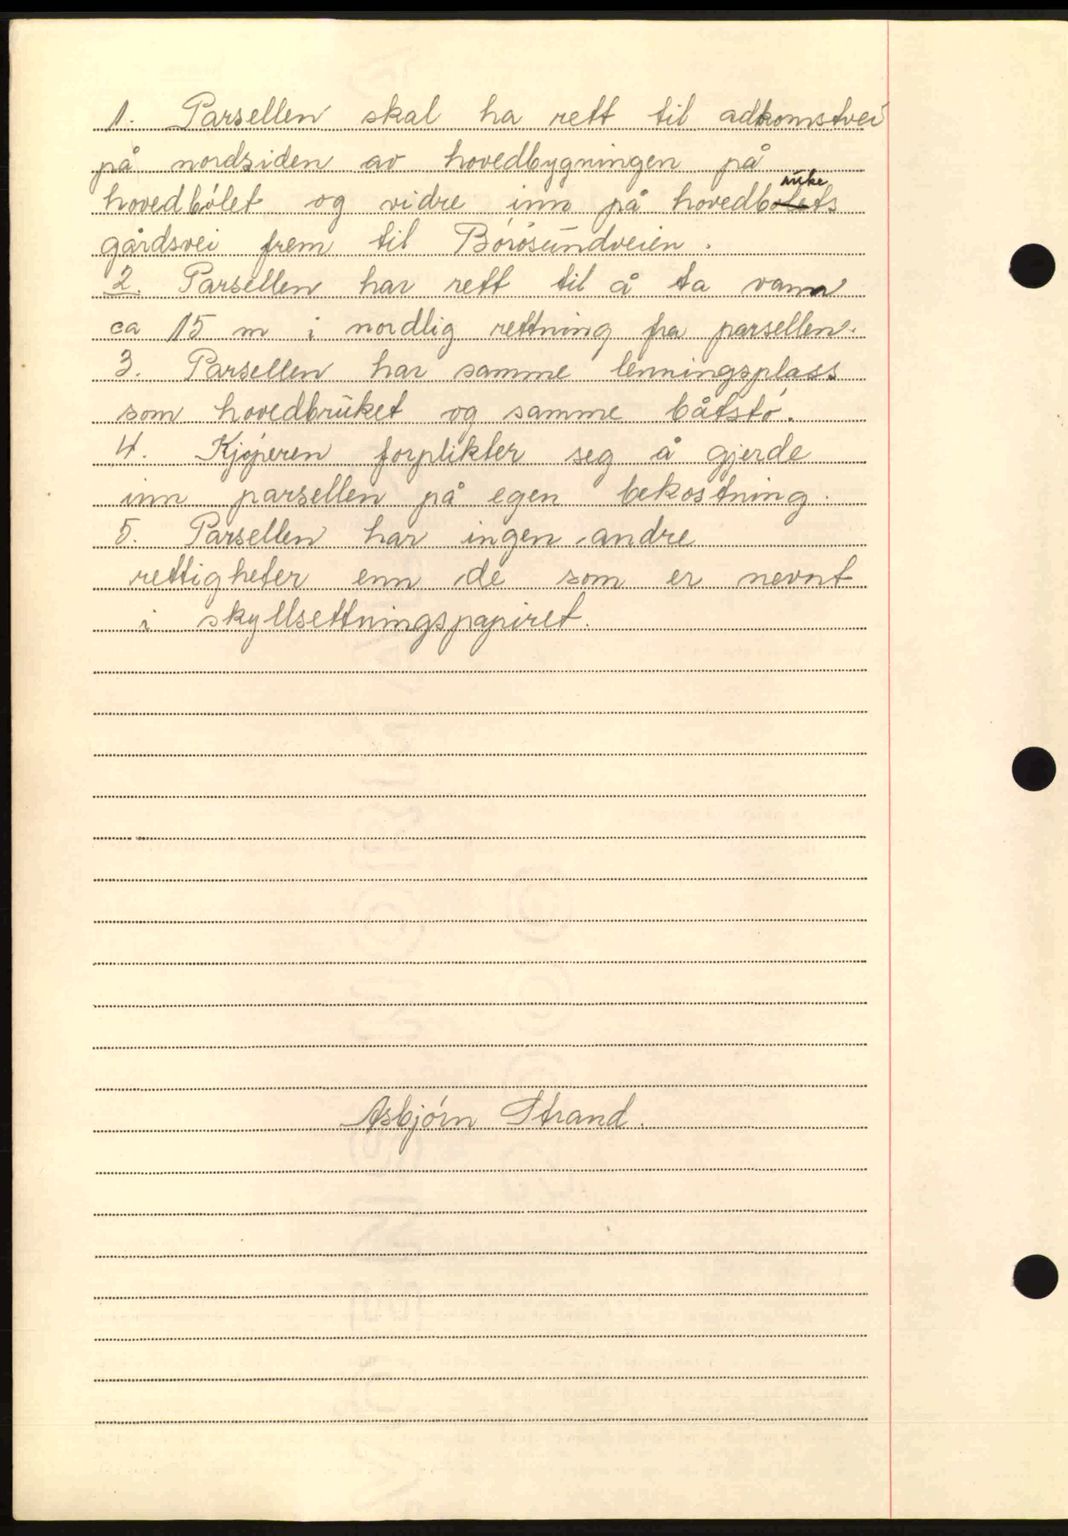 1. Parsellen skal ha rett til adkomstvei
på nordsiden av hovedbygningen på
hovedbølet og vidre inn på hovedbrukets
gårdsvei frem til Börösundveien.
2. Parsellen har rett til å ta vann
ca 15 m i nordlig rettning fra parsellen.
3. Parsellen har samme lenningsplass
som hovedbruket og samme båtstø.
4. Kjøperen forplikter seg å gjerde
inn parsellen på egen bekostning.
5. Parsellen har ingen andre
rettigheter enn de som er nevnt
i skyllsettningspapiret.
Asbjörn Strand.